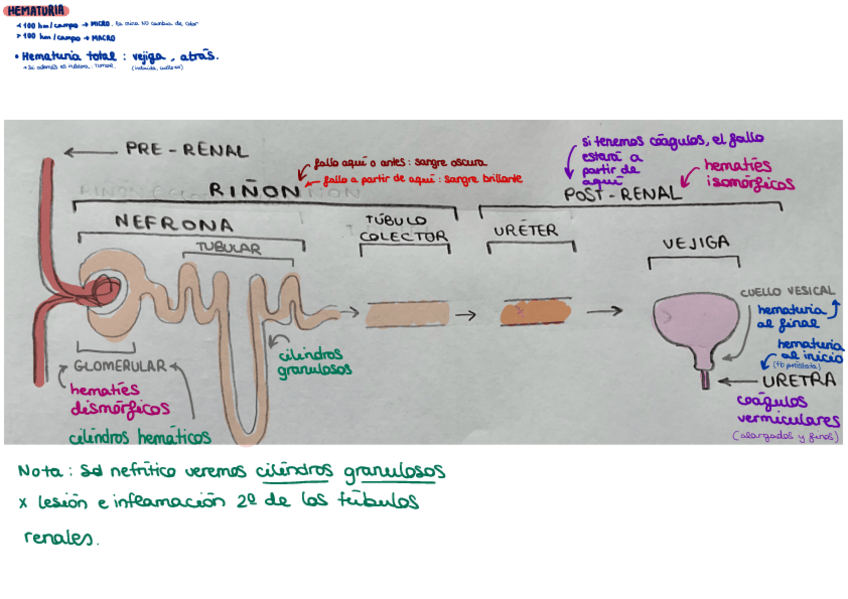 HEMATURIA
< 100 hm/campo → MICRO. La orina NO cambia de color
> 100 hm/campo → MACRO
• Hematuria total : vejiga, atrás.
→ Si además es indolora: TUMOR.
PRE-RENAL
fallo aquí o antes: sangre oscura
fallo a partir de aquí: sangre brillante
si tenemos coágulos, el fallo
estará a
partir de
aquí
hematíes
isomórficos
RIÑON
POST-RENAL
NEFRONA
TUBULAR
TÚBULO
COLECTOR
URÉTER
VEJIGA
CUELLO VESICAL
hematuria
al final
hematuria
al inicio
(tb próstata)
URETRA
coágulos
vermiculares
(alargados y finos)
cilindros
granulosos
GLOMERULAR
hematíes
dismórficos
cilindros hemáticos
Nota: Sd nefrítico veremos cilindros granulosos
x lesión e inflamación 2ª de los túbulos
renales.